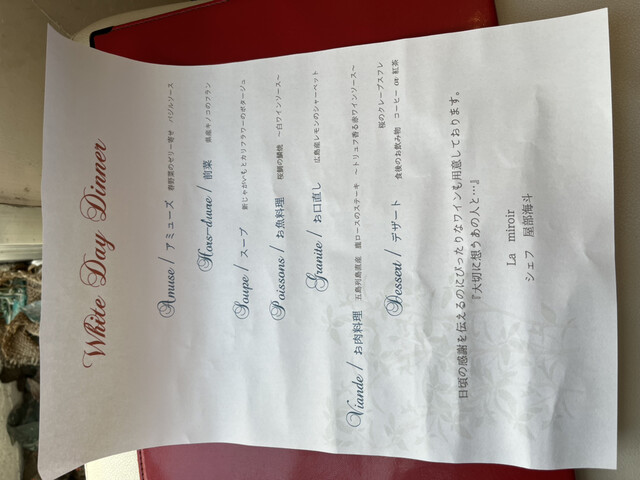 White Day Dinner
Amuse / アミューズ 春野菜のゼリー寄せ バジルソース
Hors-d'uvre / 前菜 県産キノコのフラン
Soupe / スープ 新じゃがいもとカリフラワーのポタージュ
Poissons / お魚料理 桜鯛の鱗焼 ～白ワインソース～
Granite / お口直し 広島産レモンのシャーベット
Viande / お肉料理 五島列島直産 鹿ロースのステーキ ～トリュフ香る赤ワインソース～
Dessert / デザート 桜のクレープスフレ
食後のお飲み物 コーヒー or 紅茶
日頃の感謝を伝えるのにぴったりなワインも用意しております。
『大切に想うあの人と…』
La miroir
シェフ 屋部海斗